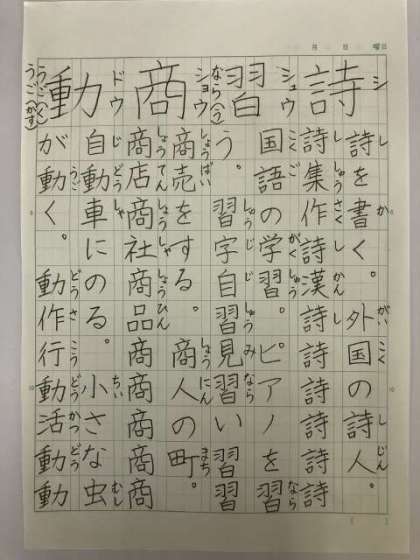 月 日 曜日
詩 シ
習 シュウ なら(う)
商 ショウ
動 ドウ うご(く) うご(かす)
詩を書く。外国の詩人。
し か がい こく し じん
詩集作詩漢詩詩詩詩詩詩
し しゅう さく し かん し
国語の学習。ピアノを習
こく ご がく しゅう なら
う。習字自習見習い習習
しゅう じ じ しゅう み なら
商売をする。商人の町。
しょう ばい しょう にん まち
商店商社商品商商商商商
しょう てん しょう しゃ しょう ひん
自動車にのる。小さな虫
じ どう しゃ ちい むし
が動く。動作行動活動動
うご どう さ こう どう かつ どう